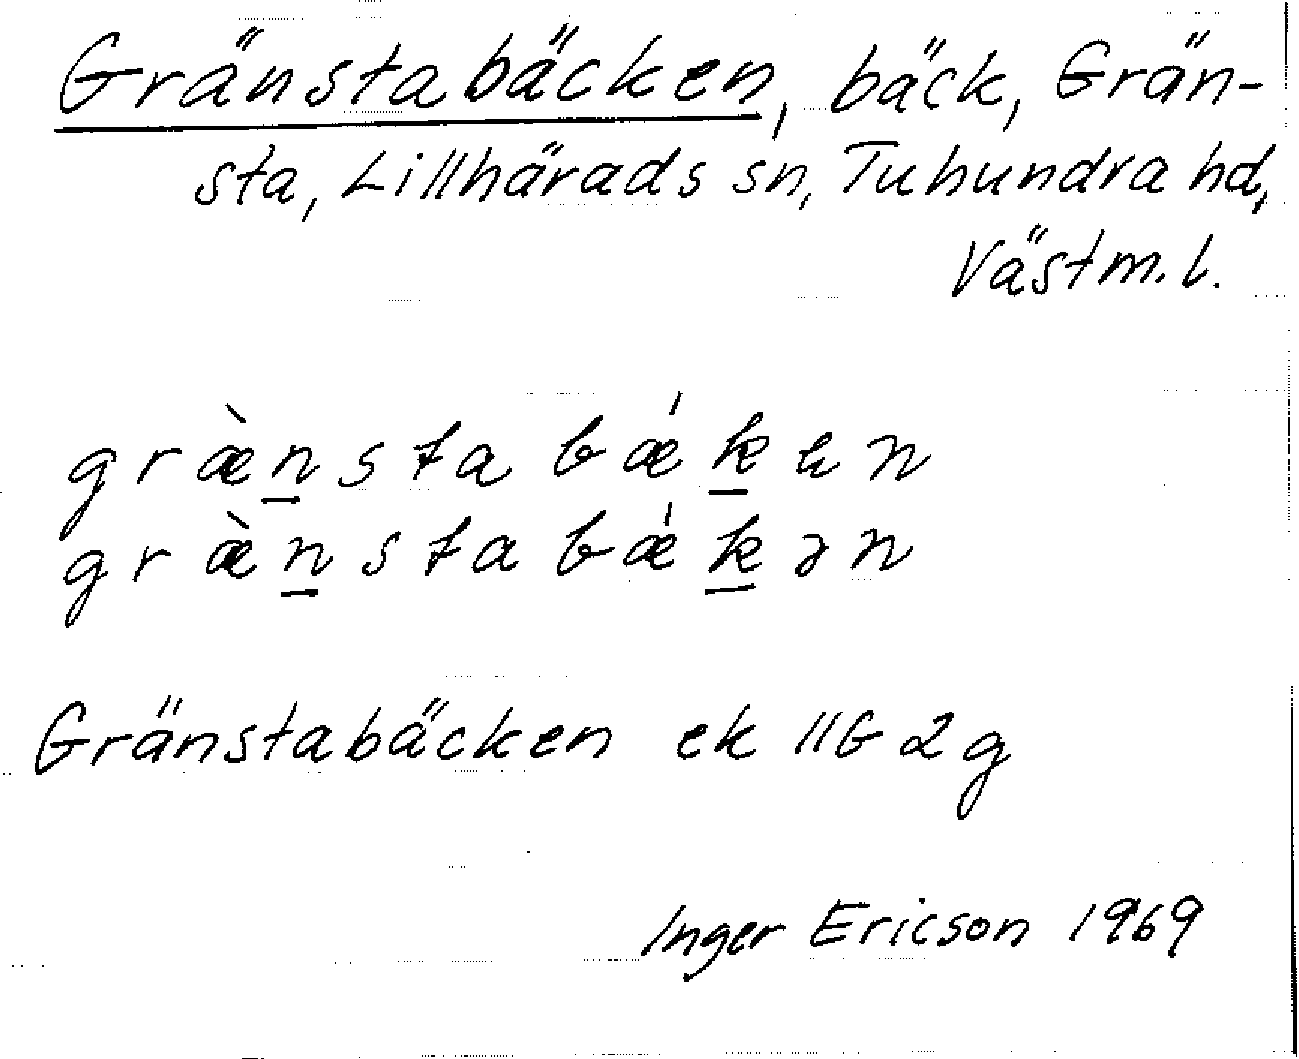 Gränstabäcken, bäck, Grän-
sta, Lillhärads sn, Tuhundra hd,
Västm. l.
græ̀n̲stabǽk̲en
græ̀n̲stabǽk̲ən
Gränstabäcken ek 11G 2g
Inger Ericson 1969